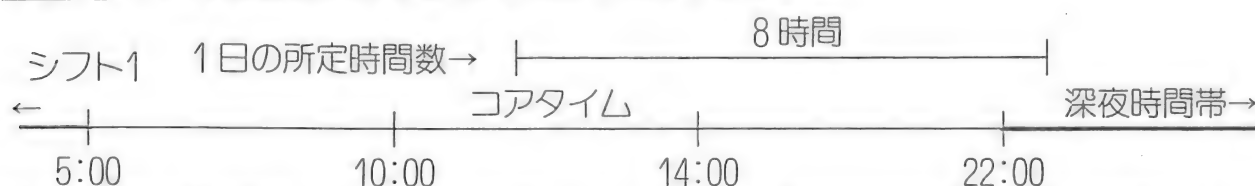 8時間
シフト1 1日の所定時間数→
← コアタイム 深夜時間帯→
5:00 10:00 14:00 22:00